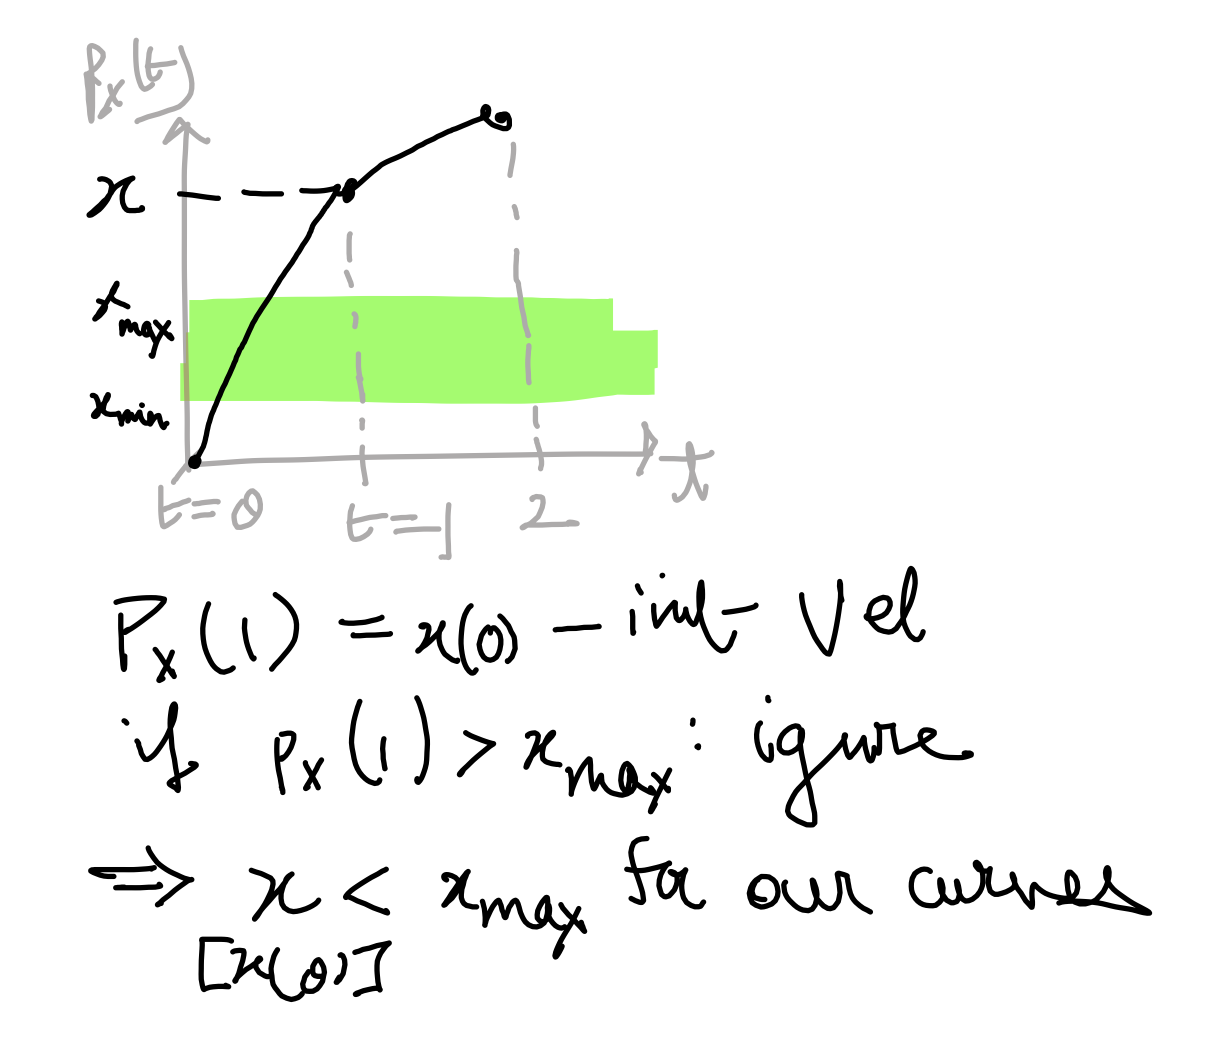 Px(t)
x
xmax
xmin
t
t=0 t=1 2
Px(1) = x(0) – init vel
if Px(1) > xmax : ignore
⇒ x < xmax for our curves
[x(0)]